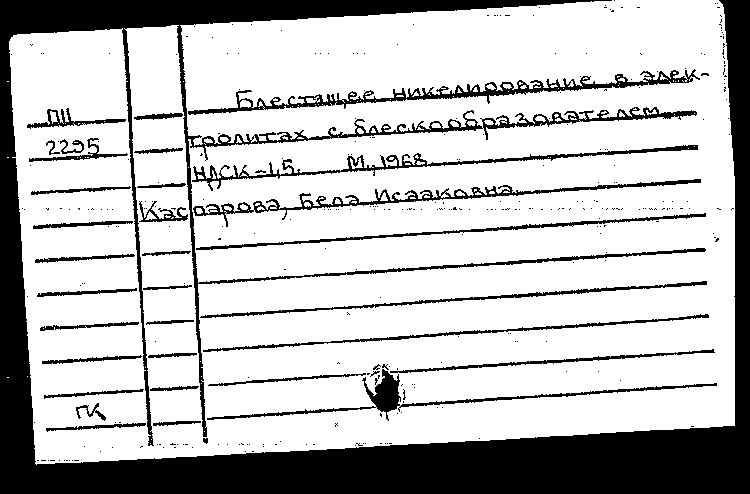 Блестящее никелирование в элек-
ПII
тролитах с блескообразователем
2295
НДСК-1,5. М., 1968
Каспарова, Бела Исааковна.
ГК